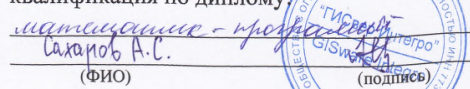 квалификация по диплому:
математик - программист
Сахаров А.С.
(ФИО) (подпись)
"ГИСвэр Интегро"
GISware Integro